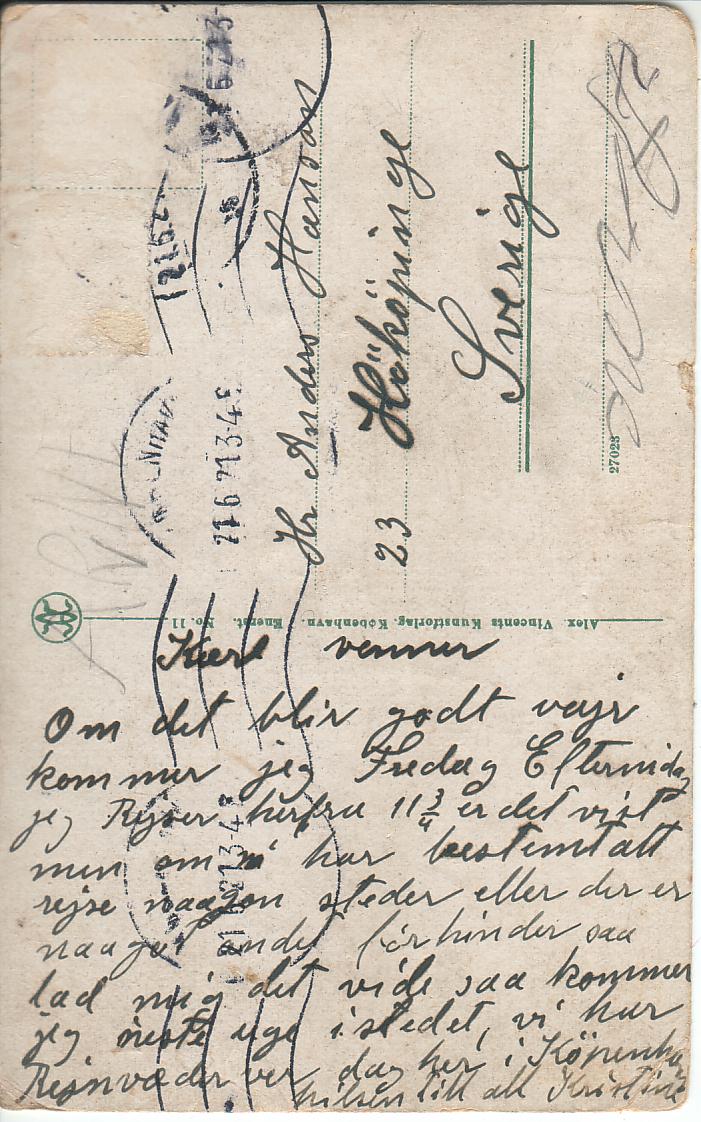 Kære venner
Om det blir godt vejr
kommer jeg Fredag Eftermidag
jeg Rejser herfra 11 3/4 er det vist
men om ni har bestemt att
rejse naagon steder eller der er
naagot andet förhinder saa
lad mig det vide saa kommer
jeg neste uge istedet, vi har
Rejnvæder ver dag her i Köpenha
hilsen till all Kristine
Alex. Vincents Kunstforlag. København. Eneret. No. 11
Hr Anders Hanson
23 Hököpinge
Sverige
27023
21 6 21 3-4 E